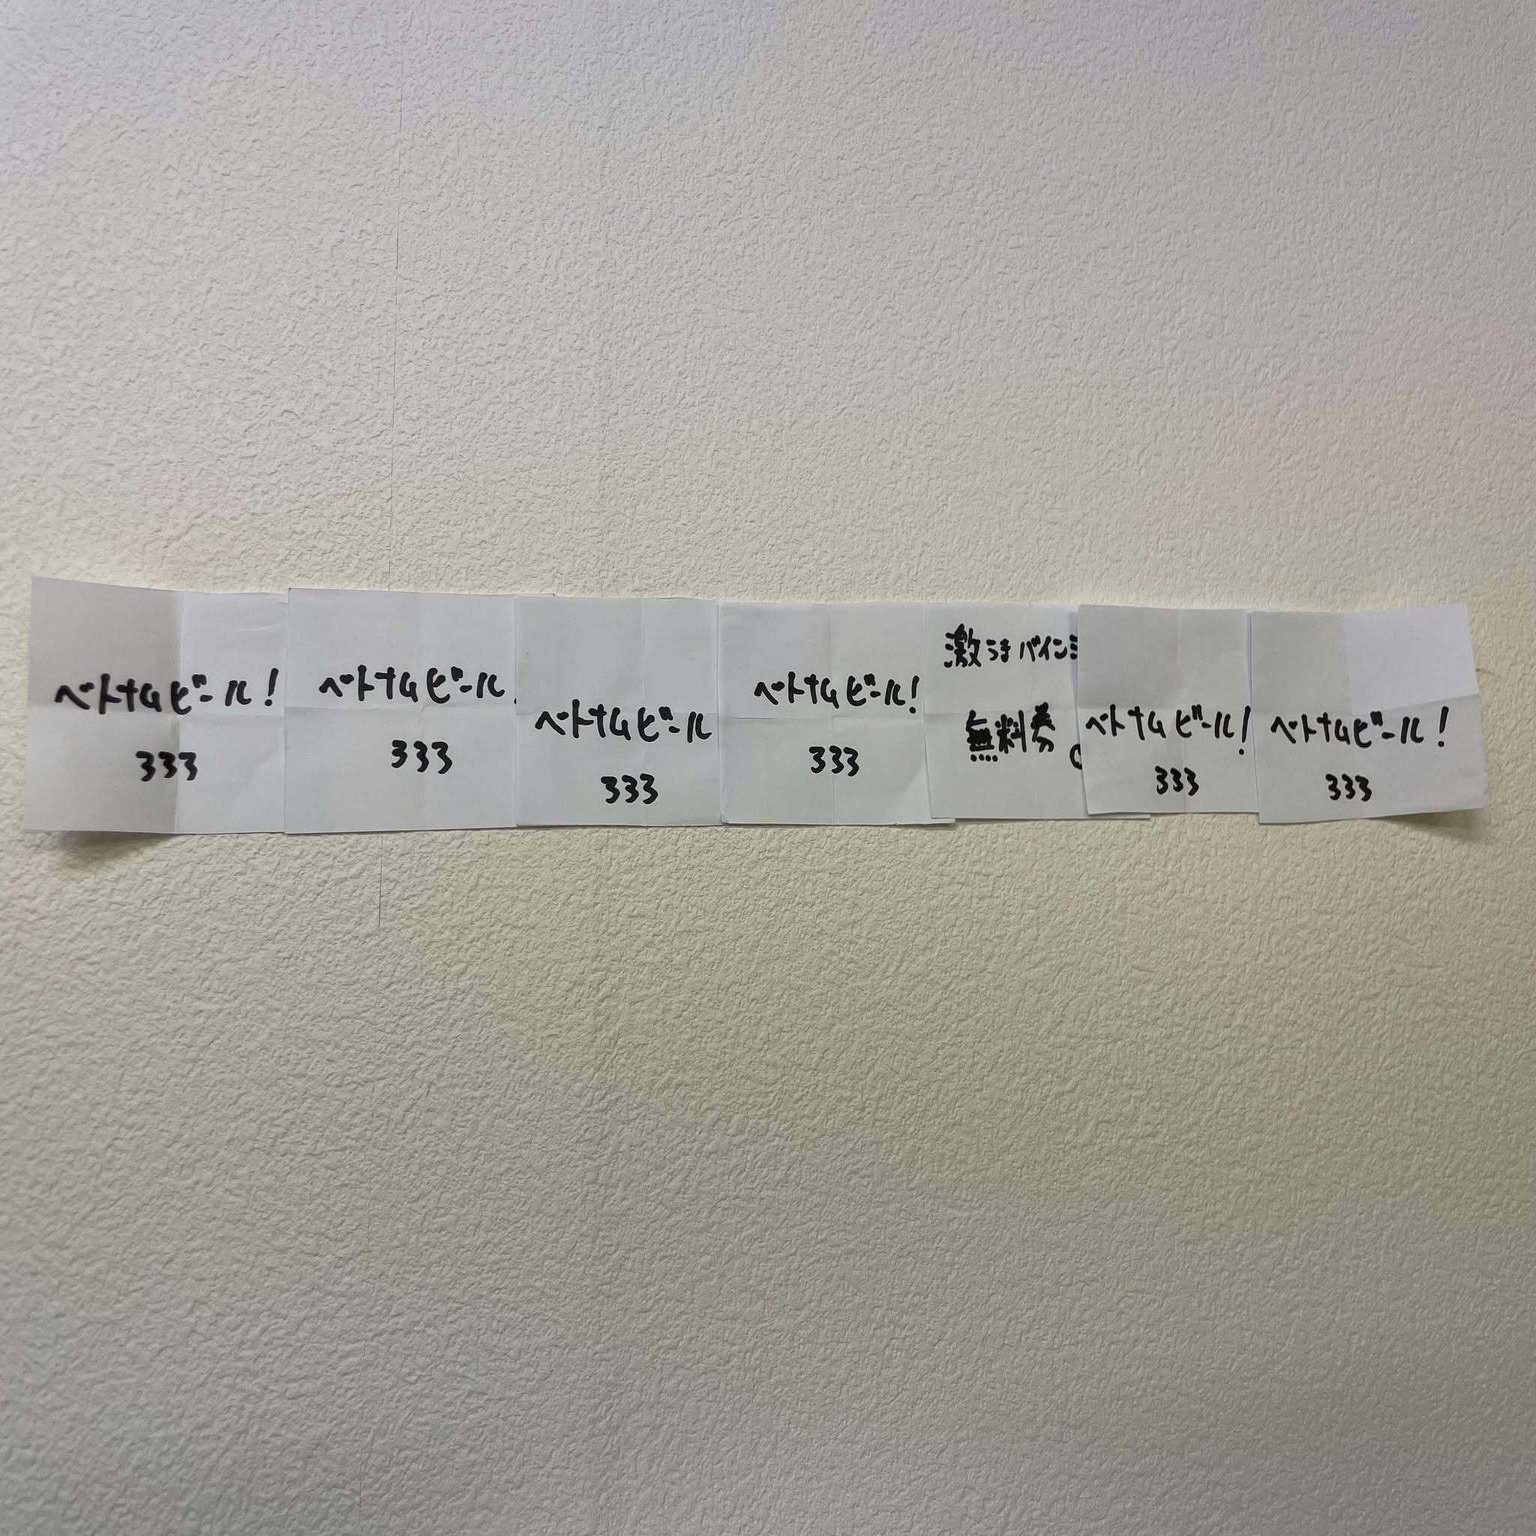 ベトナムビール!
333
ベトナムビール
333
ベトナムビール
333
ベトナムビール!
333
激うまバインミ
無料券
ベトナムビール!
333
ベトナムビール!
333